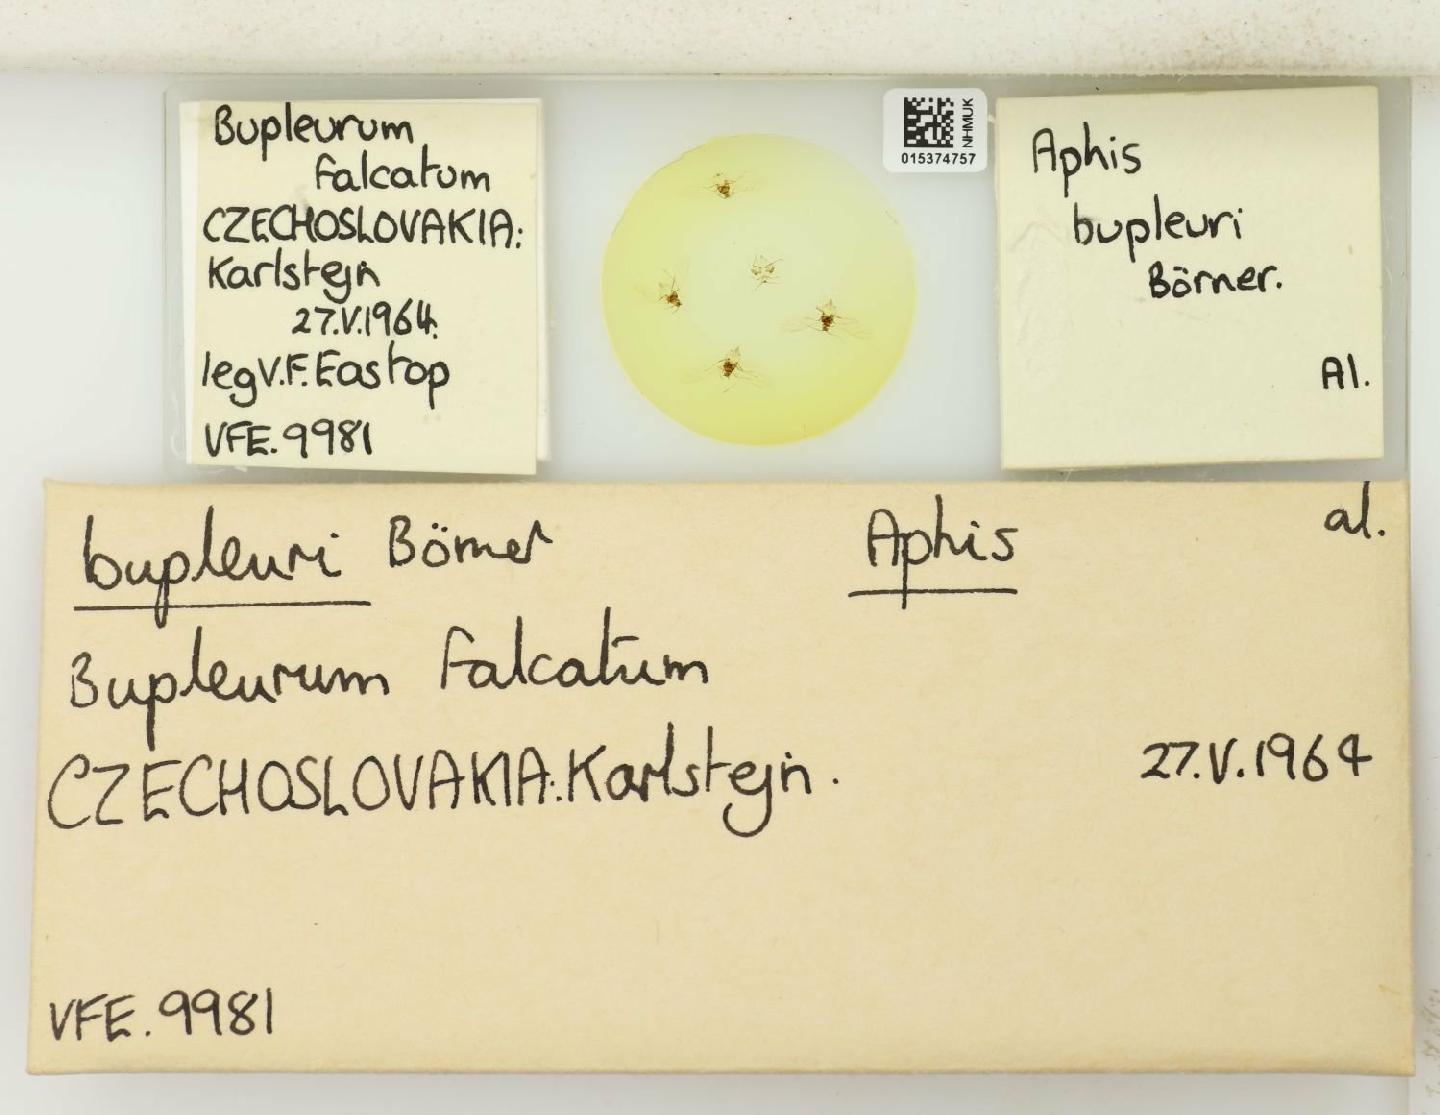 Bupleurum
falcatum
CZECHOSLOVAKIA:
Karlstejn
27.V.1964.
leg V.F. Eastop
VFE. 9981
NHMUK
015374757
Aphis
bupleuri
Börner.
Al.
bupleuri Börner Aphis al.
Bupleurum falcatum
CZECHOSLOVAKIA: Karlstejn. 27.V.1964
VFE. 9981